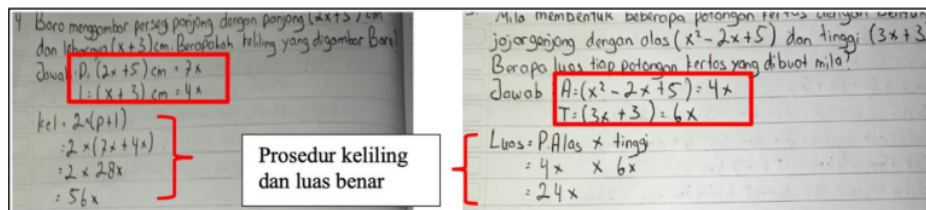 4 Bara menggambar persegi panjang dengan panjang (2x+5) cm
dan lebarnya (x+3) cm. Berapakah keliling yang digambar Bara?
Jawab: P. (2x+5) cm = 7x
l = (x+3) cm = 4x
kel = 2x(p+l)
= 2 x (7x+4x)
= 2 x 28x
= 56x
Prosedur keliling
dan luas benar
Mila membentuk beberapa potongan kertas dengan bentuk
jajargenjang dengan alas (x² - 2x+5) dan tinggi (3x+3
Berapa luas tiap potongan kertas yang dibuat mila?
Jawab A = (x² - 2x+5) = 4x
T = (3x+3) = 6x
Luas = P.Alas x tinggi
= 4x x 6x
= 24x